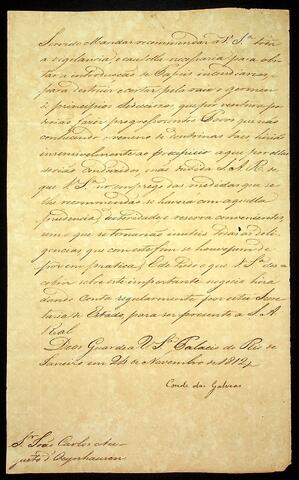 Servido Mandar recommendar a V. Sa. toda
a vigilancia, e cautella necessaria para obs-
tar a introducção de Papeis incendiarios,
para destruir e cortar pela raiz o germen
e principios Sediciosos, que por ventura po-
derião fazer progressos entre Povos que não
conhecendo o veneno de doutrinas taes, serião
insensivelmente ao precipicio a que por ellas
serião conduzidos, mas duvida S. A. R. de
que V. Sa. no emprego das medidas que se
lhe recommendão se haverá com aquella
prudencia, dexteridade e reserva convenientes,
sem o que se tornarião inuteis todas as dili-
gencias, que com este fim se houvessem de
pôr em pratica; E de tudo o que V. Sa. des-
cobrir sobre este importante negocio hirá
dando Conta regularmente por esta Secre-
taria de Estado, para ser presente a S. A.
Real.
Deos Guarde a V. Sa. Palacio do Rio de
Janeiro em 24 de Novembro de 1812
Conde das Galveas
Sr. João Carlos Au-
gusto d'Oeynhausen